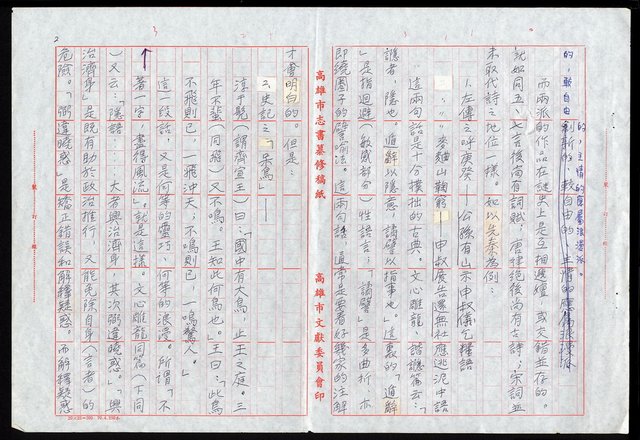 的，較自由
的，主情的應屬浪漫派。
刺新的、較自由的、主情的應屬浪漫派
而兩派的作品在謎史上是互相遞嬗，或交錯並存的。
就如同五、七言後尚有詞賦，唐律絕後尚有古詩；宋詞並
未取代詩之地位一樣。如以先秦為例：
⒈左傳之呼庚癸——公孫有山示申叔儀乞糧語
⒉〃〃麥麴山鞠窮——申叔展告還無社應逃泥中語
這兩句話是十分樸拙的古典。文心雕龍‧諧讔篇云：「
讔者，隱也，遁辭以隱意，譎譬以指事也。」這裏的「遁辭
」是指迴避（敏感部分）性語言；「譎譬」是多曲折，亦
即繞圈子的譬喻法。這兩句話，通常是要看好幾家的注解
高雄市志書纂修稿紙
高雄市文獻委員會印
才會明白的。但是：
⒊史記之「呆鳥」——
淳于髡（謂齊宣王）曰：「國中有大鳥，止王之庭。三
年不蜚（同飛）又不鳴。王知此何鳥也。」王曰：「此鳥
不飛則已，一飛沖天；不鳴則已，一鳴驚人。」
這一段話，又是何等的靈巧，何等的浪漫。所謂「不
著一字，盡得風流」。就是這樣。文心雕龍同篇（下同
）又云：「隱語……大者興治濟身，其次弼違曉惑」。「興
治濟身」是既有助於政治推行，又能免除自身（言者）的
危險。「弼違曉惑」是矯正錯誤和解釋疑惑。而解釋疑惑